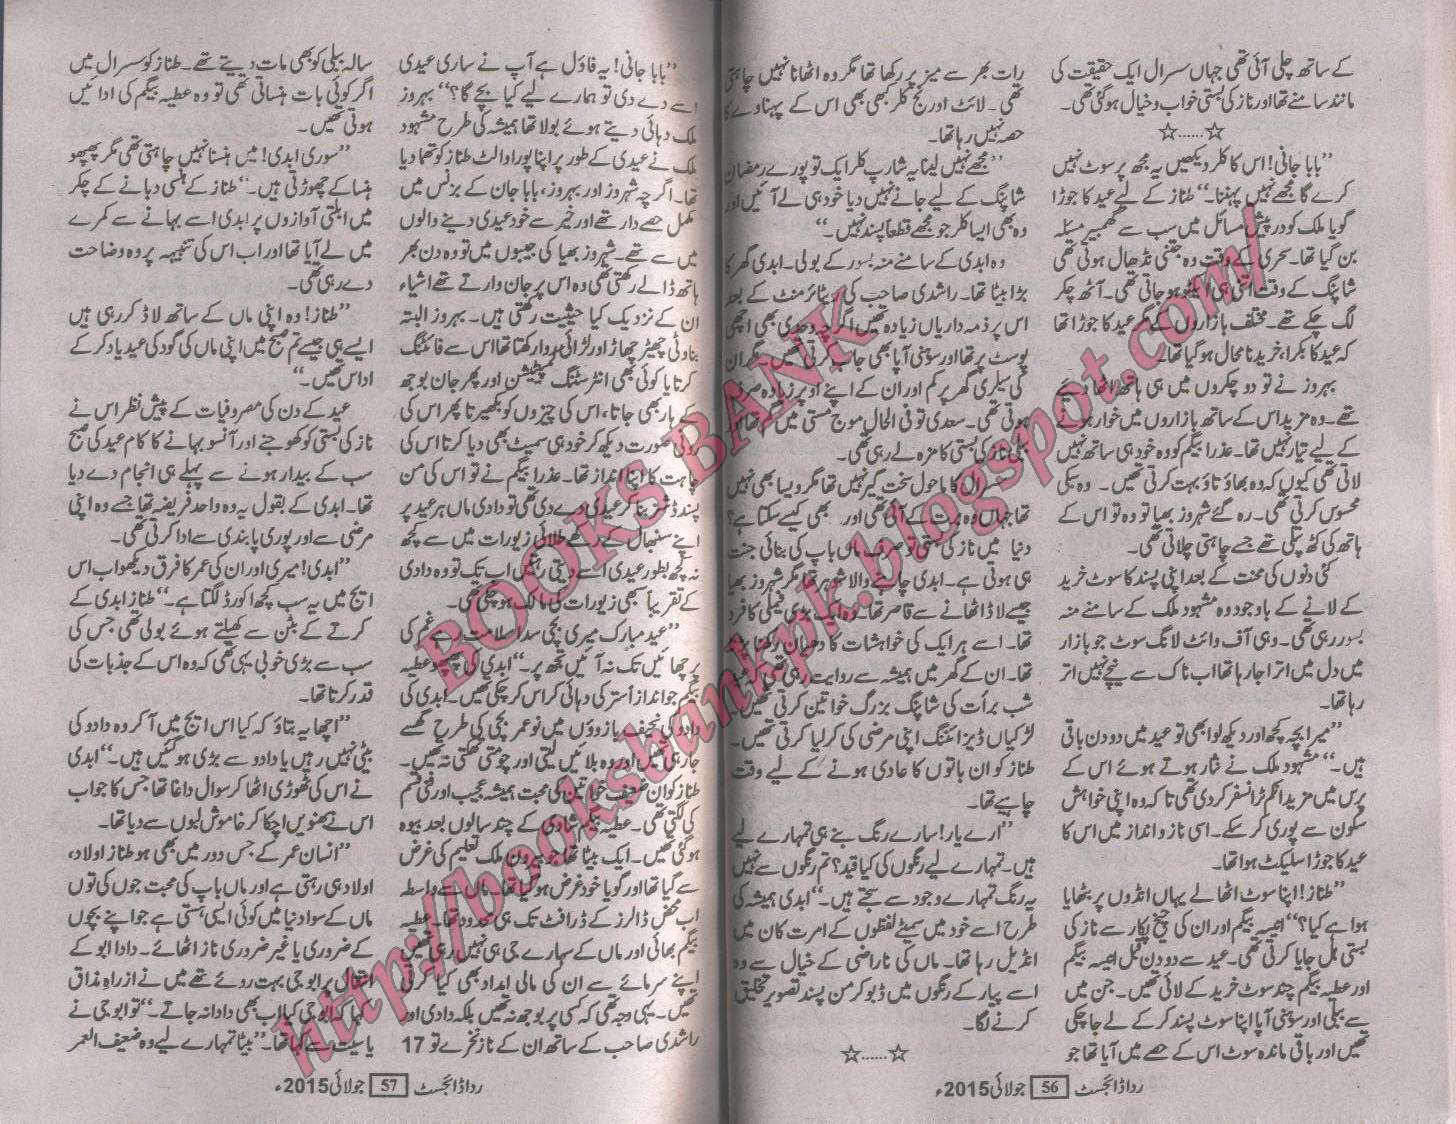 کے ساتھ چلی آئی تھی جہاں سسرال ایک حقیقت کی
مانند سامنے تھا اور ناز کی بستی خواب و خیال ہو گئی تھی۔
☆......☆
”بابا جانی! اس کا کلر دیکھیں یہ مجھ پر سوٹ نہیں
کرے گا مجھے نہیں پہننا۔“ طناز کے لیے عید کا جوڑا
گویا ملک کو درپیش مسائل میں سب سے گھمبیر مسئلہ
بن گیا تھا۔ سحری کے وقت وہ جتنی نڈھال ہوتی تھی
شاپنگ کے وقت اتنی ہی ایکٹو ہو جاتی تھی۔ آٹھ چکر
لگ چکے تھے۔ مختلف بازاروں کے مگر عید کا جوڑا تھا
کہ عید کا بکرا، خریدنا محال ہو گیا تھا۔
بہروز نے تو دو چکروں میں ہی ہاتھ اٹھا دیئے
تھے۔ وہ مزید اس کے ساتھ بازاروں میں خوار ہونے
کے لیے تیار نہیں تھا۔ عذرا بیگم کو وہ خود ہی ساتھ نہیں
لاتی تھی کیوں کہ وہ بھاؤ تاؤ بہت کرتی تھیں۔ وہ سبکی
محسوس کرتی تھی۔ رہ گئے شہروز بھیا تو وہ تو اس کے
ہاتھ کی کٹھ پتلی تھے جسے چاہتی چلاتی تھی۔
کئی دنوں کی محنت کے بعد اپنی پسند کا سوٹ خرید
کے لانے کے باوجود وہ مشہود ملک کے سامنے منہ
بسور رہی تھی۔ وہی آف وائٹ لانگ سوٹ جو بازار
میں دل میں اترا جا رہا تھا اب ناک سے نیچے نہیں اتر
رہا تھا۔
”میرا بچہ کچھ اور دیکھ لو ابھی تو عید میں دو دن باقی
ہیں۔“ مشہود ملک نے نثار ہوتے ہوئے اس کے
پرس میں مزید انکم ٹرانسفر کر دی تھی تاکہ وہ اپنی خواہش
سکون سے پوری کر سکے۔ اسی ناز و انداز میں اس کا
عید کا جوڑا سلیکٹ ہوا تھا۔
”طناز! اپنا سوٹ اٹھا لے یہاں انڈوں پر بٹھایا
ہوا ہے کیا؟“ انیسہ بیگم اور ان کی چیخ پکار سے ناز کی
بستی ہل جایا کرتی تھی۔ عید سے دو دن قبل انیسہ بیگم
اور عطیہ بیگم چند سوٹ خرید کے لائی تھیں۔ جن میں
سے ببلی اور سوہنی آپا اپنا سوٹ پسند کر کے لے جا چکی
تھیں اور باقی ماندہ سوٹ اس کے حصے میں آیا تھا جو
رات بھر سے میز پر رکھا تھا مگر وہ اٹھانا نہیں چاہتی
تھی۔ لائٹ اورنج کلر کبھی بھی اس کے پہناوے کا
حصہ نہیں رہا تھا۔
”مجھے نہیں لینا یہ شارپ کلر ایک تو پورے رمضان
شاپنگ کے لیے جانے نہیں دیا خود ہی لے آئیں اور
وہ بھی ایسا کلر جو مجھے قطعاً پسند نہیں۔“
وہ ابدی کے سامنے منہ بسور کے بولی۔ ابدی گھر کا
بڑا بیٹا تھا۔ راشدی صاحب کی ریٹائرمنٹ کے بعد
اس پر ذمہ داریاں زیادہ تھیں اگرچہ وحدی بھی اچھی
پوسٹ پر تھا اور سوہنی آپا بھی جاب کرتی تھیں۔ مگر ان
کی سیلری گھر پر کم اور ان کے اپنے اوپر زیادہ صرف
ہوتی تھی۔ سعدی تو فی الحال موج مستی میں گم تھا اور
ببلی ناز کی بستی کا مزہ لے رہی تھی۔
سسرال کا ماحول سخت گیر نہیں تھا مگر ویسا بھی نہیں
تھا جہاں وہ برت کے آئی تھی اور بھی کیسے سکتا ہے؟
دنیا میں ناز کی بستی تو صرف ماں باپ کی بنائی جنت
ہی ہوتی ہے۔ ابدی چاہنے والا شوہر تھا مگر شہروز بھیا
جیسے لاڈ اٹھانے سے قاصر تھا۔ وہ ایک بڑی فیملی کا فرد
تھا۔ اسے ہر ایک کی خواہشات کا دھیان رکھنا پڑتا
تھا۔ ان کے گھر میں ہمیشہ سے روایت رہی تھی کہ عید
شب برأت کی شاپنگ بزرگ خواتین کرتی تھیں۔
لڑکیاں ڈیزائننگ اپنی مرضی کی کر لیا کرتی تھیں۔
طناز کو ان باتوں کا عادی ہونے کے لیے وقت
چاہیے تھا۔
”ارے یار! سارے رنگ بنے ہی تمہارے لیے
ہیں۔ تمہارے لیے رنگوں کی کیا قید؟ تم رنگوں سے نہیں
یہ رنگ تمہارے وجود سے سجتے ہیں۔“ ابدی ہمیشہ کی
طرح اسے خود میں سمیٹے لفظوں کے امرت کان میں
انڈیل رہا تھا۔ ماں کی ناراضی کے خیال سے وہ
اسے پیار کے رنگوں میں ڈبو کر من پسند تصویر تخلیق
کرنے لگا۔
☆......☆
ردا ڈائجسٹ 56 جولائی 2015ء
”بابا جانی! یہ فاؤل ہے آپ نے ساری عیدی
اسے دے دی تو ہمارے لیے کیا بچے گا؟“ بہروز
ملک دہائی دیتے ہوئے بولا تھا ہمیشہ کی طرح مشہود
ملک نے عیدی کے طور پر اپنا پورا والٹ طناز کو تھما دیا
تھا۔ اگرچہ شہروز اور بہروز، بابا جان کے بزنس میں
مکمل حصے دار تھے اور خیر سے خود عیدی دینے والوں
میں سے تھے۔ شہروز بھیا کی جیبوں میں تو وہ دن بھر
ہاتھ ڈالے رکھتی تھی وہ اس پر جان وارتے تھے اشیاء
ان کے نزدیک کیا حیثیت رکھتی ہیں۔ بہروز البتہ
بناوٹی چھیڑ چھاڑ اور لڑائی روا رکھتا تھا اس سے فائٹنگ
کرتا یا کوئی بھی انٹرسٹنگ کمپٹیشن اور پھر جان بوجھ
کے ہار بھی جاتا، اس کی چیزوں کو بکھیرتا پھر اس کی
روٹی صورت دیکھ کر خود ہی سمیٹ بھی دیا کرتا اس کی
چاہت کا اپنا انداز تھا۔ عذرا بیگم نے تو اس کی من
پسند ڈشز بنا کر عیدی دے دی تھی تو دادی ماں ہر عید پر
اپنے سنبھال کے رکھے طلائی زیورات میں سے کچھ
نہ کچھ بطور عیدی اسے دیتی رہتیں اب تک تو وہ دادی
کے تقریباً سبھی زیورات کی مالک ہو چکی تھی۔
”عید مبارک میری بچی سدا سلامت رہے غم کی
پرچھائیں تک نہ آئیں تجھ پر۔“ ابدی کی پھپھو عطیہ
بیگم جو انداز آستر کی دہائی کراس کر چکی تھیں۔ ابدی کی
دادو کی نحیف بازوؤں میں نو عمر بچی کی طرح گھسے
جا رہی تھیں اور وہ بلائیں لیتی اور چومتی تھکتی نہ تھیں۔
طناز کو ان ضعیف خواتین کی محبت ہمیشہ عجیب اور فنی قسم
کی لگتی تھی۔ عطیہ بیگم شادی کے چند سالوں بعد بیوہ
ہو گئی تھیں۔ ایک بیٹا تھا جو بیرون ملک تعلیم کی غرض
سے گیا تھا اور گویا خود غرض ہو گیا تھا۔ ماں سے واسطہ
اب محض ڈالرز کے ڈرافٹ تک ہی محدود تھا۔ عطیہ
بیگم بھائی اور ماں کے سہارے جی ہی نہیں رہی تھیں
اپنے سرمائے سے ان کی مالی امداد بھی کیا کرتی
تھیں۔ یہی وجہ تھی کہ کسی پر بوجھ نہ تھیں بلکہ دادی اور
راشدی صاحب کے ساتھ ان کے ناز نخرے تو 17
سالہ ببلی کو بھی مات دیتے تھے۔ طناز کو سسرال میں
اگر کوئی بات ہنساتی تھی تو وہ عطیہ بیگم کی ادائیں
ہوتی تھیں۔
”سوری ابدی! میں ہنسنا نہیں چاہتی تھی مگر پھپھو
ہنسا کے چھوڑتی ہیں۔“ طناز کے ہنسی دبانے کے چکر
میں ابلتی آوازوں پر ابدی اسے بہانے سے کمرے
میں لے آیا تھا اور اب اس کی تنبیہہ پر وہ وضاحت
دے رہی تھی۔
”طناز! وہ اپنی ماں کے ساتھ لاڈ کر رہی ہیں
ایسے ہی جیسے تم صبح میں اپنی ماں کی گود کی عید یاد کر کے
اداس تھیں۔“
عید کے دن کی مصروفیات کے پیش نظر اس نے
ناز کی بستی کو کھوجنے اور آنسو بہانے کا کام عید کی صبح
سب کے بیدار ہونے سے پہلے ہی انجام دے دیا
تھا۔ ابدی کے بقول یہ وہ واحد فریضہ تھا جسے وہ اپنی
مرضی سے اور پوری پابندی سے ادا کرتی تھی۔
”ابدی! میری اور ان کی عمر کا فرق دیکھو اب اس
ایج میں یہ سب کچھ اکورڈ لگتا ہے۔“ طناز ابدی کے
کرتے کے بٹن سے کھیلتے ہوئے بولی تھی جس کی
سب سے بڑی خوبی یہی تھی کہ وہ اس کے جذبات کی
قدر کرتا تھا۔
”اچھا یہ بتاؤ کہ کیا اس ایج میں آ کر وہ دادو کی
بیٹی نہیں رہیں یا دادو سے بڑی ہو گئیں ہیں۔“ ابدی
نے اس کی ٹھوڑی اٹھا کر سوال داغا تھا جس کا جواب
اس نے بھنویں اچکا کر خاموش لبوں سے دیا تھا۔
”انسان عمر کے جس دور میں بھی ہو طناز اولاد،
اولاد ہی رہتی ہے اور ماں باپ کی محبت جوں کی توں
ماں کے سوا دنیا میں کوئی ایسی ہستی ہے جو اپنے بچوں
کے ضروری یا غیر ضروری ناز اٹھائے۔ دادا ابو کے
انتقال پر ابو جی بہت روئے تھے میں نے ازراہ مذاق
کہا کہ ابو جی کیا اب بھی دادا نہ جاتے۔“ تو ابو جی نے
یاسیت سے کہا تھا۔ ”بیٹا تمہارے لیے وہ ضعیف العمر
ردا ڈائجسٹ 57 جولائی 2015ء
BOOKS BANK
http://booksbankpk.blogspot.com/